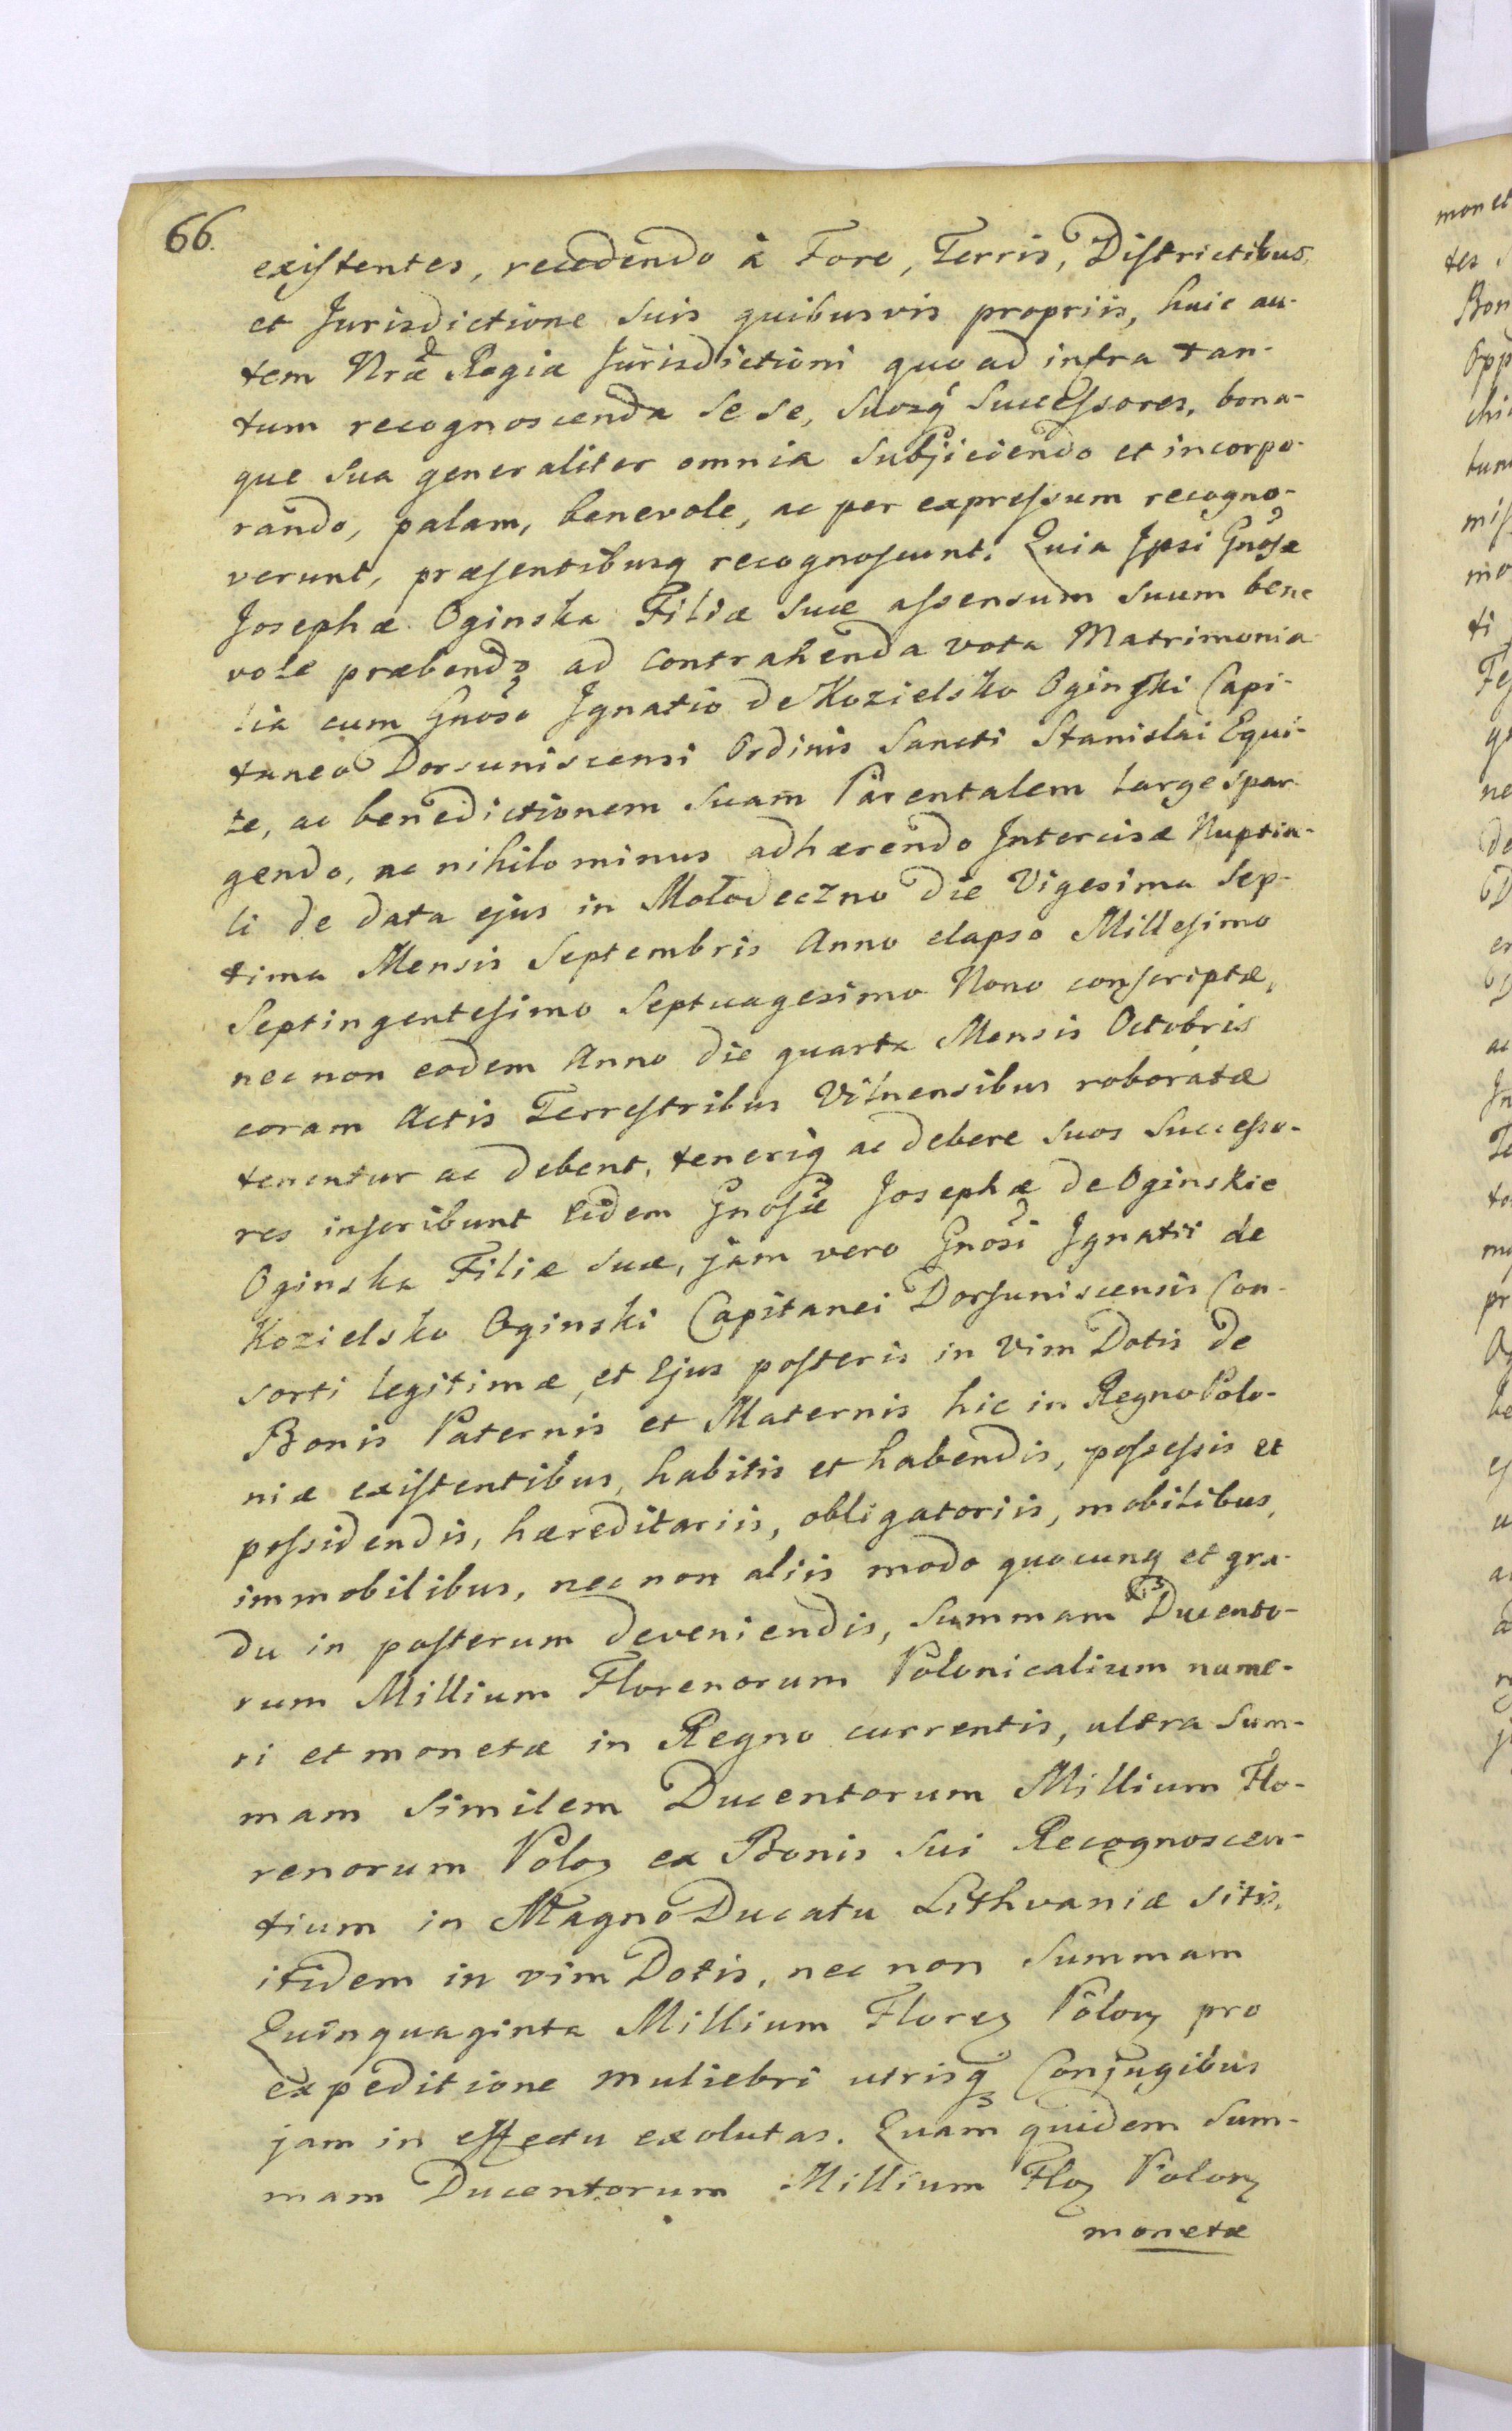 66.
existentes, recedendo à Foro, Terris, Districtibus,
et Jurisdictione suis quibusvis propriis, huic au-
tem Nrae Regiae Jurisdictioni quo ad infra tan-
tum recognoscenda se se, suosq Successores, bona-
que sua generaliter omnia subjiciendo et incorpo-
rando, palam, benevole, ac per expressum recogno-
verunt, praesentibusq recognoscunt. Quia Ipsi Gnosae
Josephae Oginska Filiae suae assensum suum bene
vole praebendo ad contrahenda vota Matrimonia
lia cum Gnoso Ignatio de Kozielsko Oginski Capi-
taneo Dorsuniscensi Ordinis Sancti Stanislai Equi-
te, ac benedictionem suam Parentalem large spar-
gendo, ac nihilominus adhaerendo Intercisae Nuptia-
li de data ejus in Mołodeczno die Vigesima Sep-
tima Mensis Septembris Anno elapso Millesimo
Septingentesimo Septuagesimo Nono conscriptae,
nec non eodem Anno die quarta Mensis Octobris
coram Actis Terrestribus Vilnensibus roboratae
tenentur ac debent, teneriq ac debere suos Successo-
res inscribunt Eidem Gnosae Josephae de Oginskie
Oginska Filiae suae, jam vero Gnosi Ignatii de
Kozielsko Oginski Capitanei Dorsuniscensis Con-
sorti legitimae, et Ejus posteris in vim Dotis de
Bonis Paternis et Maternis hic in Regno Polo-
niae existentibus, habitis et habendis, possessis et
possidendis, haereditariis, obligatoriis, mobilibus,
immobilibus, nec non aliis modo quocunq et gra-
du in posterum deveniendis, Summam Ducento-
rum Millium Florenorum Polonicalium nume-
ri et monetae in Regno currentis, ultra Sum-
mam similem Ducentorum Millium Flo-
renorum Poloꝝ ex Bonis sui Recognoscen-
tium in Magno Ducatu Lithvaniae sitis,
itidem in vim Dotis, nec non Summam
Quinquaginta Millium Floreꝝ Polonꝝ pro
expeditione muliebri utrisq Conjugibus
jam in effectu exolutas. Quam quidem Sum-
mam Ducentorum Millium Floꝝ Polonꝝ
monetae